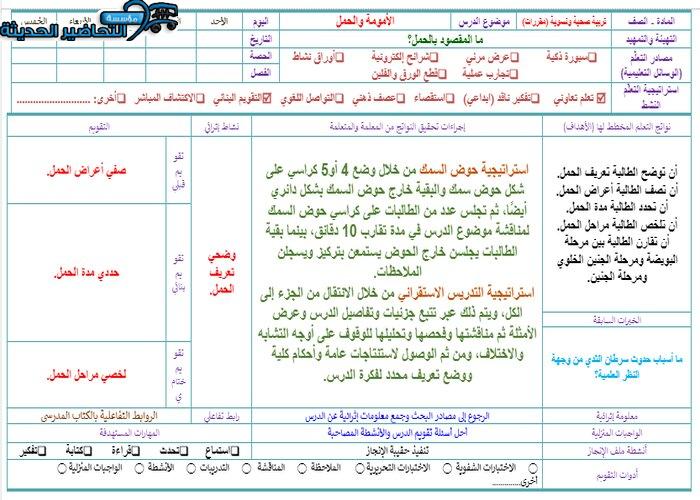 مؤسسة
التحاضير الحديثة
المادة - الصف
تربية صحية ونسوية (مقررات)
موضوع الدرس
الأمومة والحمل
اليوم
الأحد
الأربعاء
الخميس
التهيئة والتمهيد
ما المقصود بالحمل؟
التاريخ
مصادر التعلم
(الوسائل التعليمية)
سبورة ذكية
عرض مرئي
شرائح إلكترونية
أوراق نشاط
تجارب عملية
قطع الورق والفلين
الحصة
الفصل
استراتيجية التعلم
النشط
تعلم تعاوني
تفكير ناقد (ابداعي)
استقصاء
عصف ذهني
التواصل اللغوي
التقويم البنائي
الاكتشاف المباشر
أخرى: ............................
نواتج التعلم المخطط لها (الأهداف)
إجراءات تحقيق النواتج من المعلمة والمتعلمة
نشاط إثرائي
التقويم
أن توضح الطالبة تعريف الحمل.
أن تصف الطالبة أعراض الحمل.
أن تحدد الطالبة مدة الحمل.
أن تلخص الطالبة مراحل الحمل.
أن تقارن الطالبة بين مرحلة
البويضة ومرحلة الجنين الخلوي
ومرحلة الجنين.
الخبرات السابقة
ما أسباب حدوث سرطان الثدي من وجهة
النظر العلمية؟
استراتيجية حوض السمك من خلال وضع 4 أو5 كراسي على
شكل حوض سمك والبقية خارج حوض السمك بشكل دائري
أيضًا، ثم تجلس عدد من الطالبات على كراسي حوض السمك
لمناقشة موضوع الدرس في مدة تقارب 10 دقائق، بينما بقية
الطالبات يجلسن خارج الحوض يستمعن بتركيز ويسجلن
الملاحظات.
استراتيجية التدريس الاستقرائي من خلال الانتقال من الجزء إلى
الكل، ويتم ذلك عبر تتبع جزئيات وتفاصيل الدرس وعرض
الأمثلة ثم مناقشتها وفحصها وتحليلها للوقوف على أوجه التشابه
والاختلاف، ومن ثم الوصول لاستنتاجات عامة وأحكام كلية
ووضع تعريف محدد لفكرة الدرس.
وضحي
تعريف
الحمل.
تقو
يم
قبلي
صفي أعراض الحمل.
تقو
يم
بنائي
حددي مدة الحمل.
تقو
يم
ختام
ي
لخصي مراحل الحمل.
معلومة إثرائية
الرجوع إلى مصادر البحث وجمع معلومات إثرائية عن الدرس
رابط تفاعلي
الروابط التفاعلية بالكتاب المدرسي
الواجبات المنزلية
أحل أسئلة تقويم الدرس والأنشطة المصاحبة
المهارات المستهدفة
أنشطة ملف الإنجاز
تنفيذ حقيبة الإنجاز
استماع
تحدث
قراءة
كتابة
تفكير
أدوات التقويم
الاختبارات الشفوية
الاختبارات التحريرية
الملاحظة
المناقشة
التدريبات
الأنشطة
الواجبات المنزلية
أخرى......